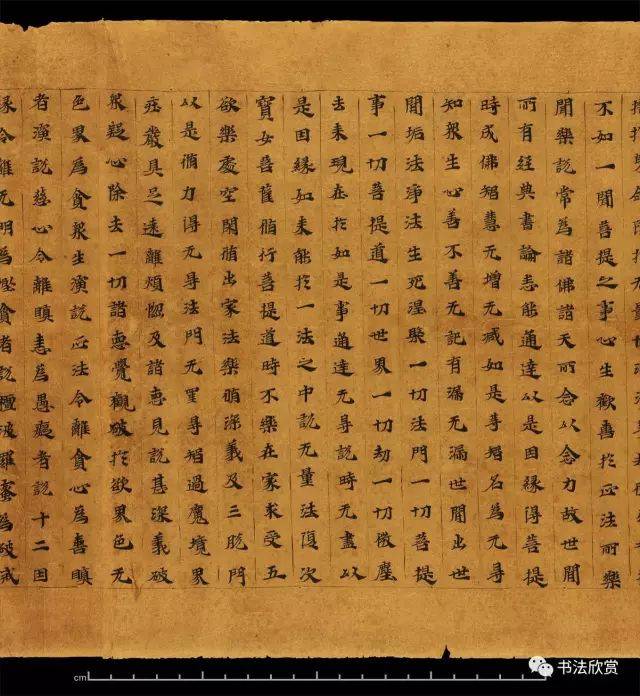 不如一聞菩提之事心生歡喜於正法所樂
聞樂說常為諸佛諸天所念以念力故世間
所有經典書論悉能通達以是因緣得菩提
時成佛智慧无增无減如是等智名為无㝵
知衆生心善不善无記有漏无漏世間出世
間垢法淨法生死涅槃一切法門一切菩提
事一切菩提道一切世界一切劫一切微塵
去来現在於如是事通達无㝵說時无盡以
是因緣如来能於一法之中說无量法復次
寶女菩薩脩行菩提道時不樂在家求受五
欲樂處空閑脩出家法樂脩深義及三脱門
以是脩力得无㝵法門无罣㝵智過魔境界
莊嚴具足遠離煩惱及諸惡見說甚深義破
衆疑心除去一切諸惡覺觀破於欲界色无
色界為貪衆生演說正法令離貪心為喜瞋
者演說慈心令離瞋恚為愚癡者說十二因
緣令離无明為慳貪者說檀波羅蜜為破戒
cm
书法欣赏